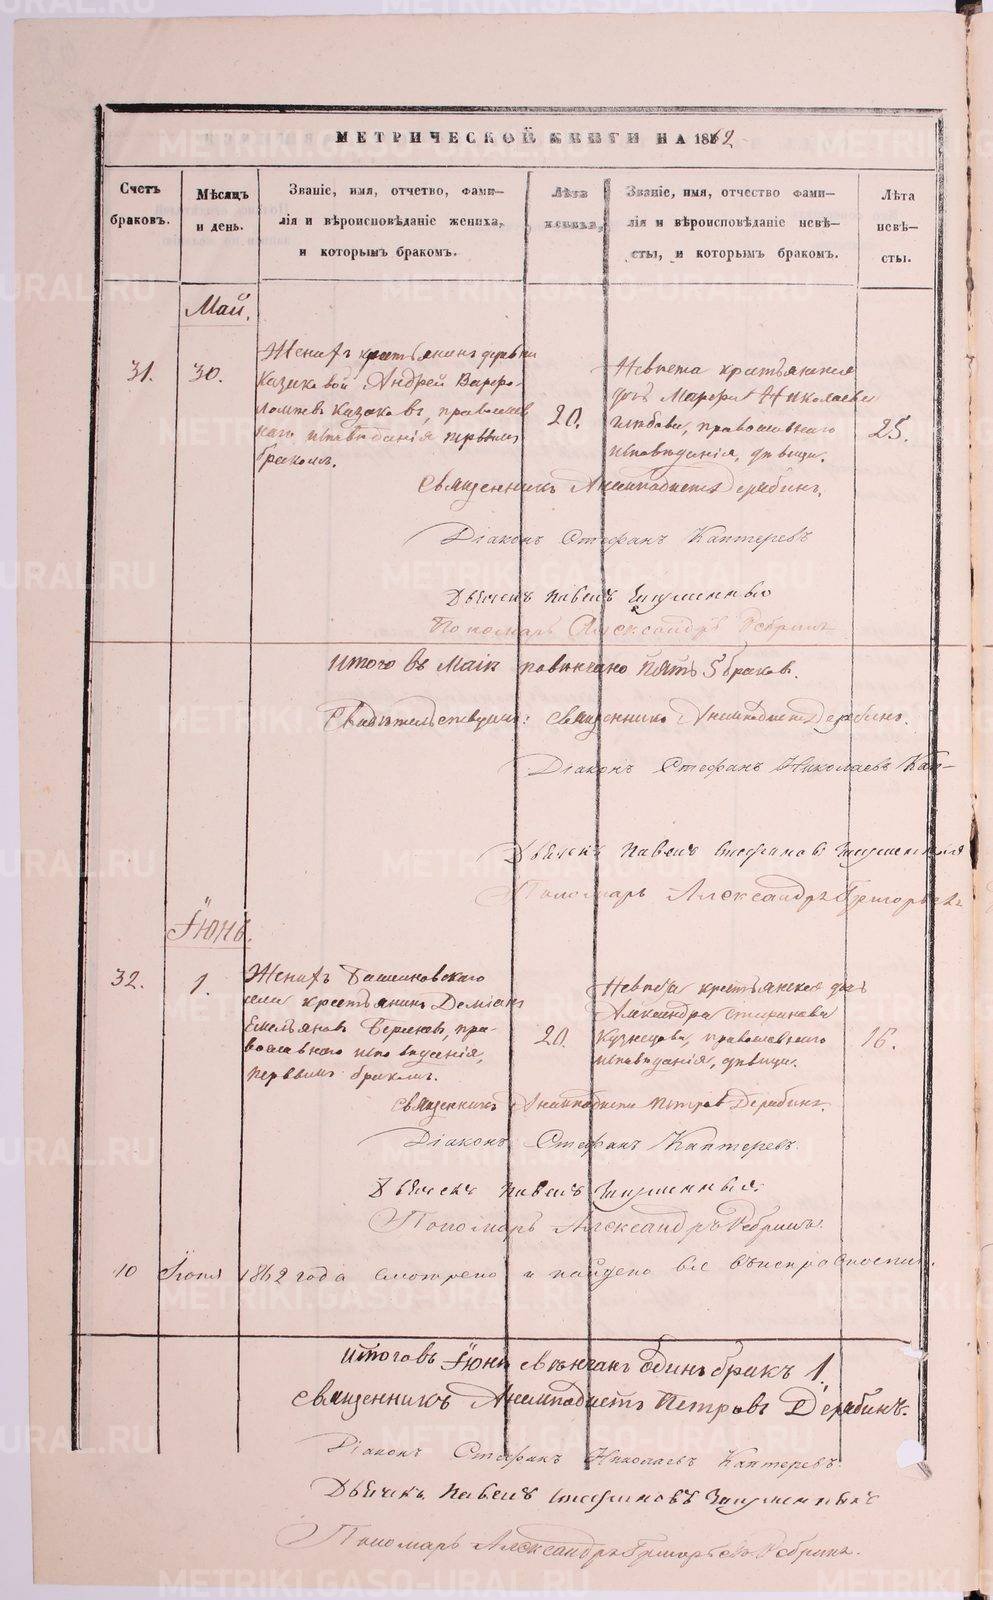 МЕТРИЧЕСКОЙ КНИГИ НА 1862
Счетъ браковъ.
Мѣсяцъ и день.
Званіе, имя, отчетво, фами-
лія и вѣроисповѣданіе жениха,
и которымъ бракомъ.
Лѣта
жениха,
Званіе, имя, отчество фами-
лія и вѣроисповѣданіе невѣ-
сты, и которымъ бракомъ.
Лѣта
невѣ-
сты.
Май.
31.
30.
Женихъ крестьянинъ деревни
Казаковой Андрей Варфо-
ломѣевъ Казаковъ, православ
наго исповѣданія первымъ
бракомъ.
20.
Невѣста крестьянская
дочь Марфа Николаева
православнаго
исповѣданія, дѣвица.
25.
Священникъ Анемподистъ Дерябинъ.
Діаконъ Стефанъ Каптеревъ
Дьячекъ Павелъ Игумновъ
Пономарь Александръ
Итого въ Маіѣ повѣнчано пять 5 браковъ.
Священникъ Анемподистъ Дерябинъ.
Діаконъ Стефанъ Николаевъ Кап-
Дьячекъ Павелъ Стефановъ
Пономарь Александръ Григорьевъ
Іюнь.
32.
1.
Женихъ
села крестьянинъ Даміанъ
Емельяновъ пра-
вославнаго исповѣданія,
первымъ бракомъ.
20.
Невѣста крестьянская дочь
Александра Стефанова
Кузнецова, православнаго
исповѣданія, дѣвица.
16.
Священникъ Анемподистъ Петровъ Дерябинъ.
Діаконъ Стефанъ Каптеревъ.
Дьячекъ Павелъ
Пономарь Александръ
10 Іюня 1862 года смотрено и найдено все въ исправности.
Итого въ Іюнѣ вѣнчанъ одинъ бракъ 1.
Священникъ Анемподистъ Петровъ Дерябинъ.
Діаконъ Стефанъ Николаевъ Каптеревъ.
Дьячекъ Павелъ Стефановъ
Пономарь Александръ Григорьевъ
METRIKI.GASO-URAL.RU